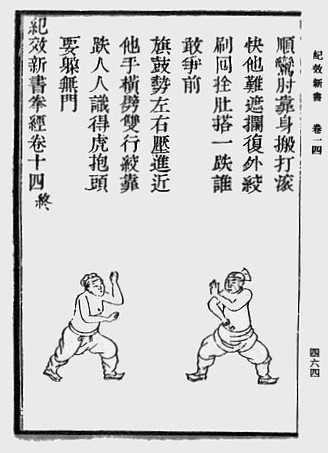 紀效新書 卷一四
四六四
順鸞肘靠身搬打滾
快他難遮攔復外絞
刷回拴肚搭一跌誰
敢爭前
旗鼓勢左右壓進近
他手橫劈雙行絞靠
跌人人識得虎抱頭
要躲無門
紀效新書拳經卷十四終